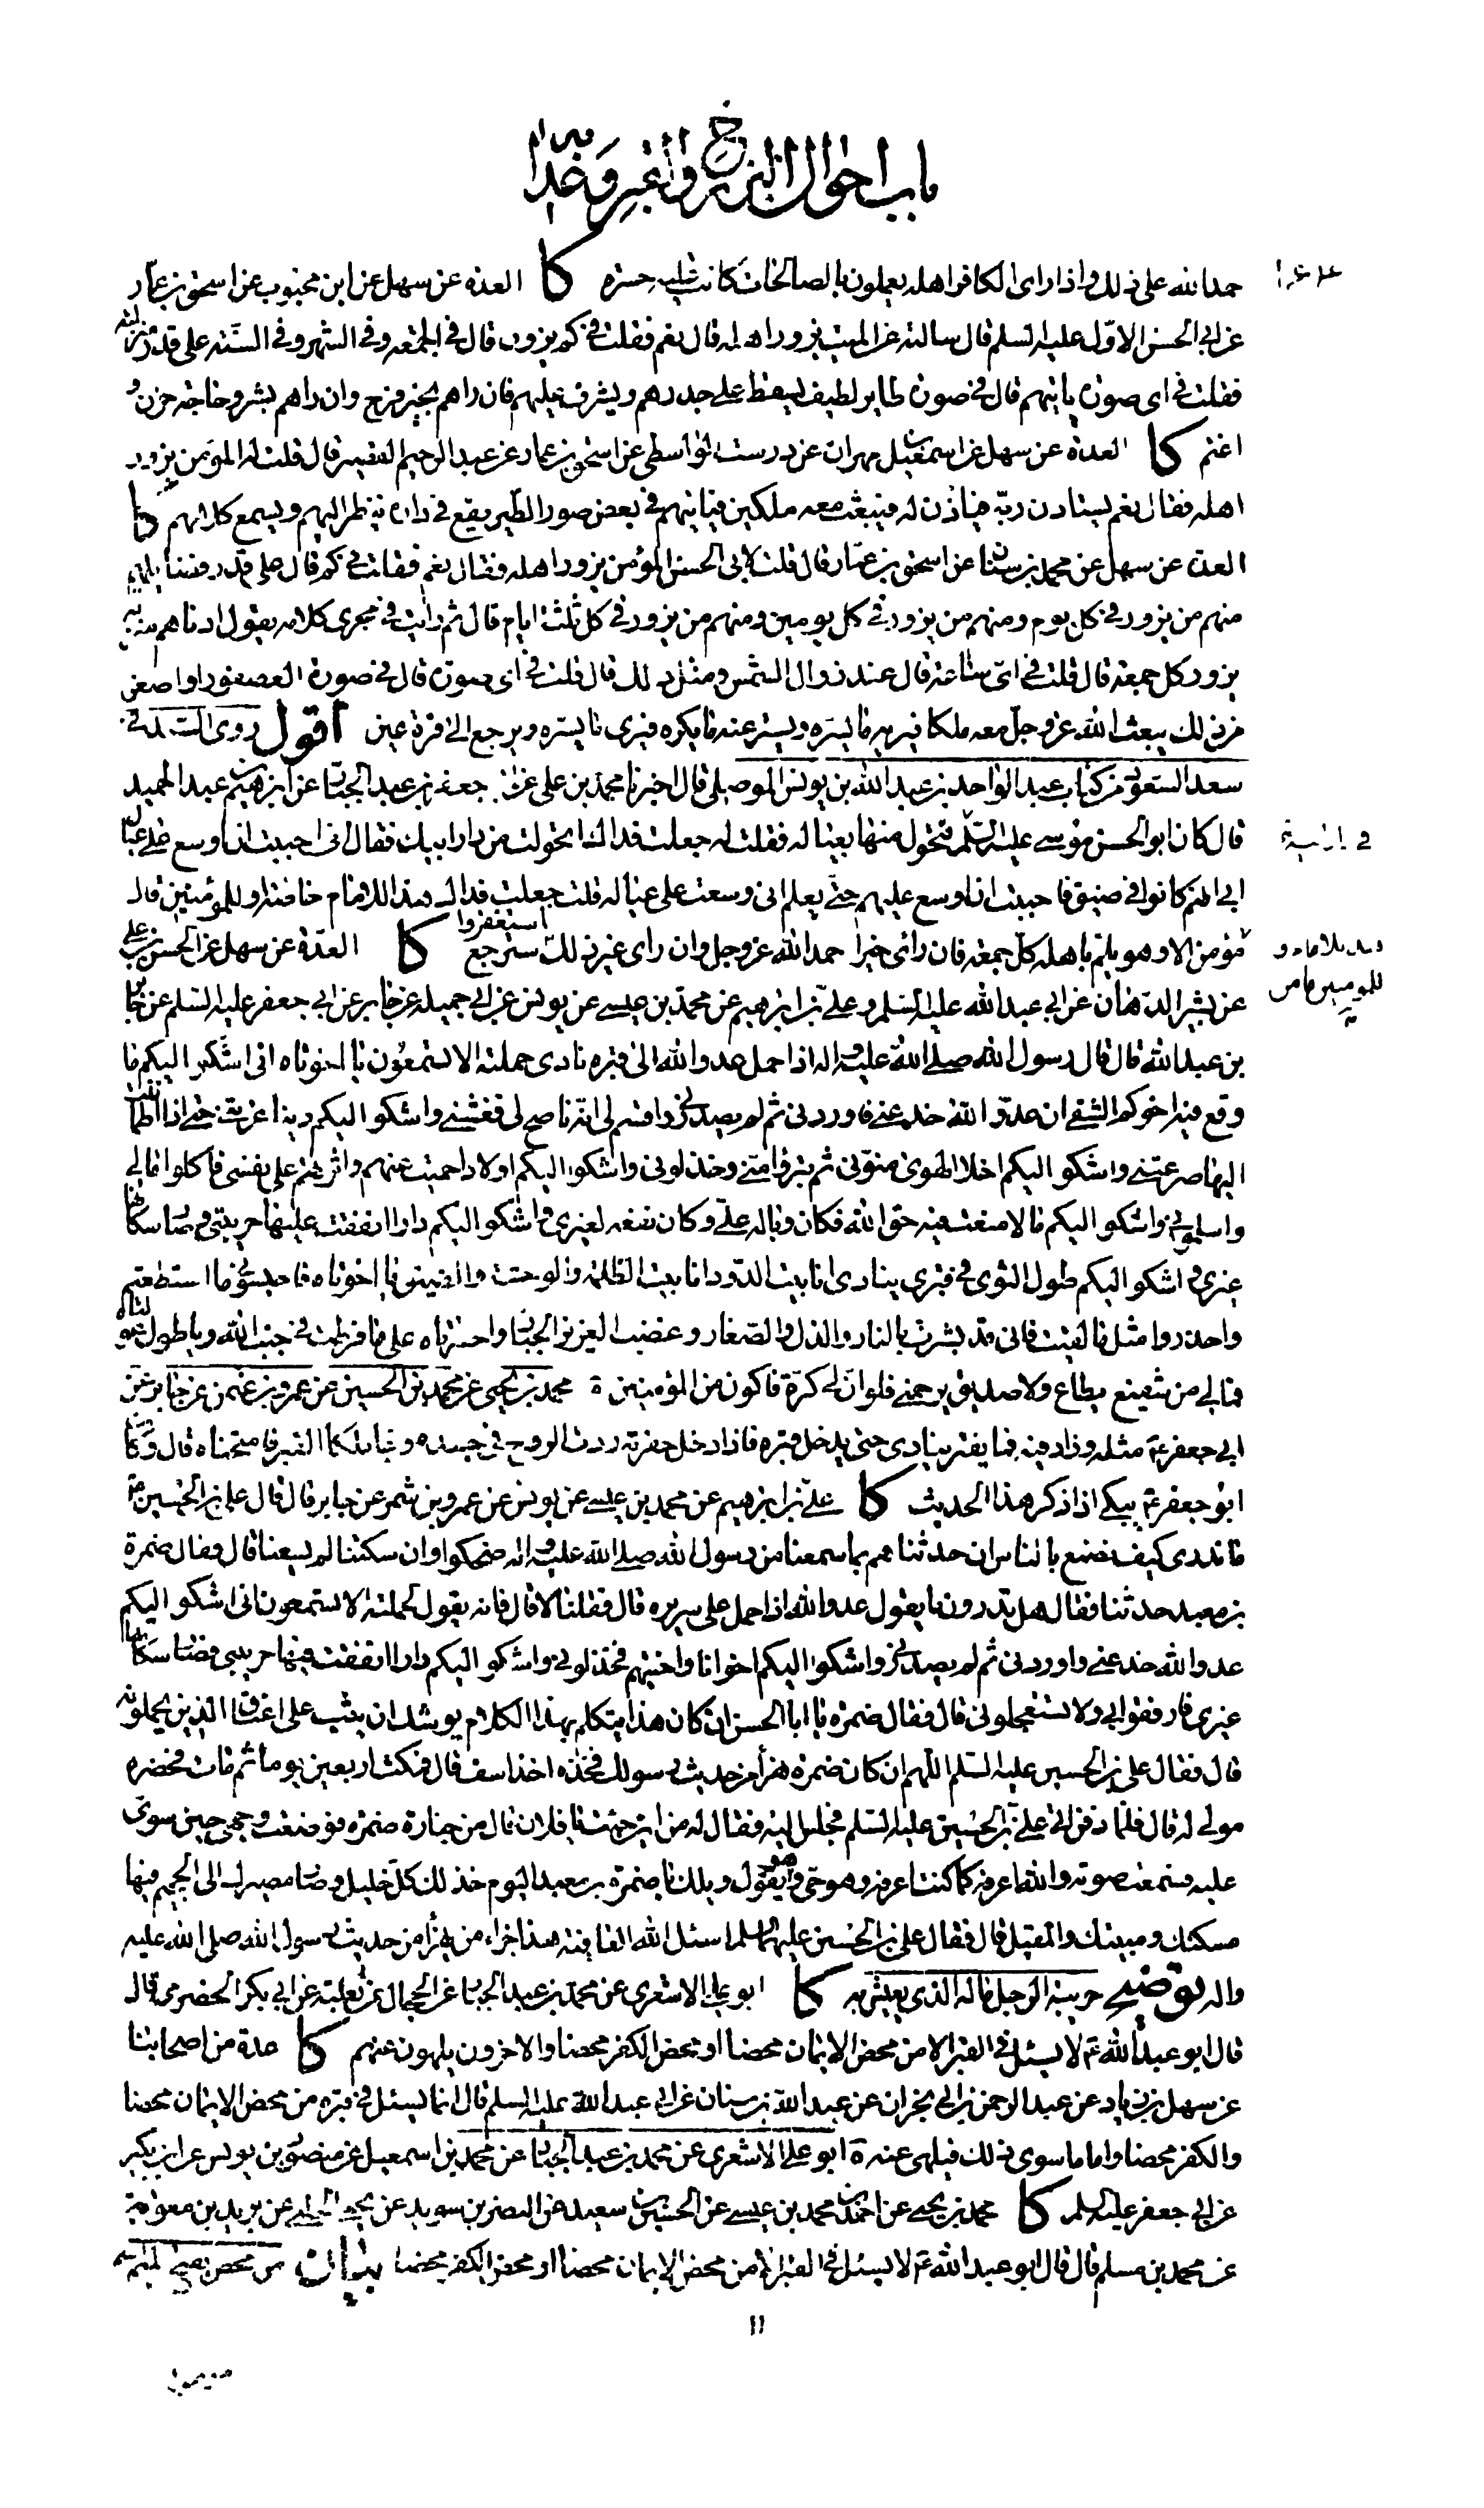 باب احوال البرزخ والقبر وعذابه
حمد الله على ذلك واذا راى الكافر اهله يعملون بالصالحات كانت عليه حسرة كا العدة عن سهل عن ابن محبوب عن اسحق بن عمار
عن ابي الحسن الاول عليه السلم قال سالته عن الميت يزور اهله قال نعم فقلت في كم يزور قال في الجمعة وفي الشهر وفي السنة على قدر منزلته
فقلت في اى صورة ياتيهم قال في صورة طاير لطيف يسقط على جدرهم ويشرف عليهم فان راهم بخير فرح وان راهم بشر وحاجة حزن و
اغتم كا العدة عن سهل عن اسمعيل بن مهران عن درست الواسطي عن اسحق بن عمار عن عبد الرحيم القصير قال قلت له المؤمن يزور
اهله فقال نعم يستاذن ربه فياذن له فيبعث معه ملكين فياتيهم في بعض صور الطير يقع في داره ينظر اليهم ويسمع كلامهم كا
العدة عن سهل عن محمد بن سنان عن اسحق بن عمار قال قلت لابي الحسن المؤمن يزور اهله فقال نعم فقلت في كم قال على قدر فضائلهم
منهم من يزور في كل يوم ومنهم من يزور في كل يومين ومنهم من يزور في كل ثلثة ايام قال ثم رايت في مجرى كلامه يقول ادناهم منزلة
يزور كل جمعة قال قلت في اى ساعة قال عند زوال الشمس ومثل ذلك قال قلت في اى صورة قال في صورة العصفور او اصغر
من ذلك يبعث الله عز وجل معه ملكا فيريه ما يسره ويستر عنه ما يكره فيرى ما يسره ويرجع الى قرة عين اقول روى السيد
سعد السعود من كتاب عبد الواحد بن عبد الله بن يونس الموصلي قال اخبرنا محمد بن علي عن جعفر بن عبد الجبار عن ابرهيم بن عبد الحميد
قال كان ابو الحسن موسى عليه السلم تحول منها بعياله فقلت له جعلت فداك اتحولت من دار ابيك فقال اني احببت ان اوسع على عيال
ابي انهم كانوا في ضيق فاحببت ان اوسع عليهم حتى يعلم اني وسعت على عياله قلت جعلت فداك هذا للامام خاصة او للمؤمنين قال
مؤمن الا وهو يلم باهله كل جمعة فان راى خيرا حمد الله عز وجل وان راى غير ذلك استغفر واسترجع كا العدة عن سهل عن الحسن بن علي
عن بشير الدهان عن ابي عبد الله عليه السلم وعلي بن ابرهيم عن محمد بن عيسى عن يونس عن ابي جميلة عن جابر عن ابي جعفر عليه السلم عن جابر
بن عبد الله قال قال رسول الله صلى الله عليه واله اذا حمل عدو الله الى قبره نادى حملته الا تسمعون يا اخوتاه اني اشكو اليكم ما
وقع فيه اخوكم الشقي ان عدو الله خدعني فاوردني ثم لم يصدرني واقسم لي انه ناصح لي فغشني واشكو اليكم دنيا غرتني حتى اذا اطماننت
اليها صرعتني واشكو اليكم اخلاء الهوى منوني ثم تبرؤا مني وخذلوني واشكو اليكم اولادا حميت عنهم واثرتهم على نفسي فاكلوا مالي
واسلموني واشكو اليكم مالا منعت فيه حق الله فكان وباله علي وكان نفعه لغيري واشكو اليكم دارا انفقت عليها حريبتي وصار سكانها
غيري واشكو اليكم طول الثوى في قبري ينادى انا بيت الدود انا بيت الظلمة والوحشة والضيق يا اخوتاه فاحبسوني ما استطعتم
واحذروا مثل ما لقيت فاني قد بشرت بالنار والذل والصغار وغضب العزيز الجبار واحسرتاه على ما فرطت في جنب الله ويا طول عويلاه
فما لي من شفيع يطاع ولا صديق يرحمني فلو ان لي كرة فاكون من المؤمنين محمد بن يحيى عن محمد بن الحسين عن عمرو بن عثمن عن جابر عن
ابي جعفر ع مثله وزاد فيه فما يفتر ينادى حتى يدخل قبره فاذا دخل حفرته ردت الروح في جسده وجاء ملكا القبر فامتحناه قال وكان
ابو جعفر ع يبكي اذا ذكر هذا الحديث كا علي بن ابرهيم عن محمد بن عيسى عن يونس عن عمرو بن شمر عن جابر قال قال علي بن الحسين ع
ما ندرى كيف نصنع بالناس ان حدثناهم بما سمعنا من رسول الله صلى الله عليه واله ضحكوا وان سكتنا لم يسعنا قال فقال ضمرة
بن معبد حدثنا فقال هل تدرون ما يقول عدو الله اذا حمل على سريره قال فقلنا لا قال فانه يقول لحملته الا تسمعون اني اشكو اليكم
عدو الله خدعني واوردني ثم لم يصدرني واشكو اليكم اخوانا واخيتهم فخذلوني واشكو اليكم دارا انفقت فيها حريبتي فصار سكانها
غيري فارفقوا بي ولا تستعجلوني قال فقال ضمرة يا ابا الحسن ان كان هذا يتكلم بهذا الكلام يوشك ان يثب على اعناق الذين يحملونه
قال فقال علي بن الحسين عليه السلم اللهم ان كان ضمرة هزأ من حديث رسولك فخذه اخذ اسف قال فمكث اربعين يوما ثم مات فحضره
مولى له قال فلما دفن اتى علي بن الحسين عليه السلم فجلس اليه فقال له من اين جئت يا فلان قال من جنازة ضمرة فوضعت وجهي حين سوى
عليه فسمعت صوته والله اعرفه كما كنت اعرفه وهو حي وهو يقول ويلك يا ضمرة بن معبد اليوم خذلك كل خليل وصار مصيرك الى الجحيم فيها
مسكنك ومبيتك والمقيل قال فقال علي بن الحسين عليهما السلم اسئل الله العافية هذا جزاء من يهزأ من حديث رسول الله صلى الله عليه
واله توضيح حريبة الرجل ماله الذي يعيش به كا ابو علي الاشعري عن محمد بن عبد الجبار عن الحجال عن ثعلبة عن ابي بكر الحضرمي قال
قال ابو عبد الله ع لا يسئل في القبر الا من محض الايمان محضا او محض الكفر محضا والاخرون يلهون عنهم كا عدة من اصحابنا
عن سهل بن زياد عن عبد الرحمن بن ابي نجران عن عبد الله بن سنان عن ابي عبد الله عليه السلم قال انما يسئل في قبره من محض الايمان محضا
والكفر محضا واما ما سوى ذلك فيلهى عنه ابو علي الاشعري عن محمد بن عبد الجبار عن محمد بن اسمعيل عن منصور بن يونس عن ابن بكير
عن ابي جعفر عليه السلم كا محمد بن يحيى عن احمد بن محمد بن عيسى عن الحسين بن سعيد عن النضر بن سويد عن يحيى الحلبي عن بريد بن معوية
عن محمد بن مسلم قال قال ابو عبد الله ع لا يسئل في القبر الا من محض الايمان محضا او محض الكفر محضا بيان من محض
في
للمؤمنين
١١